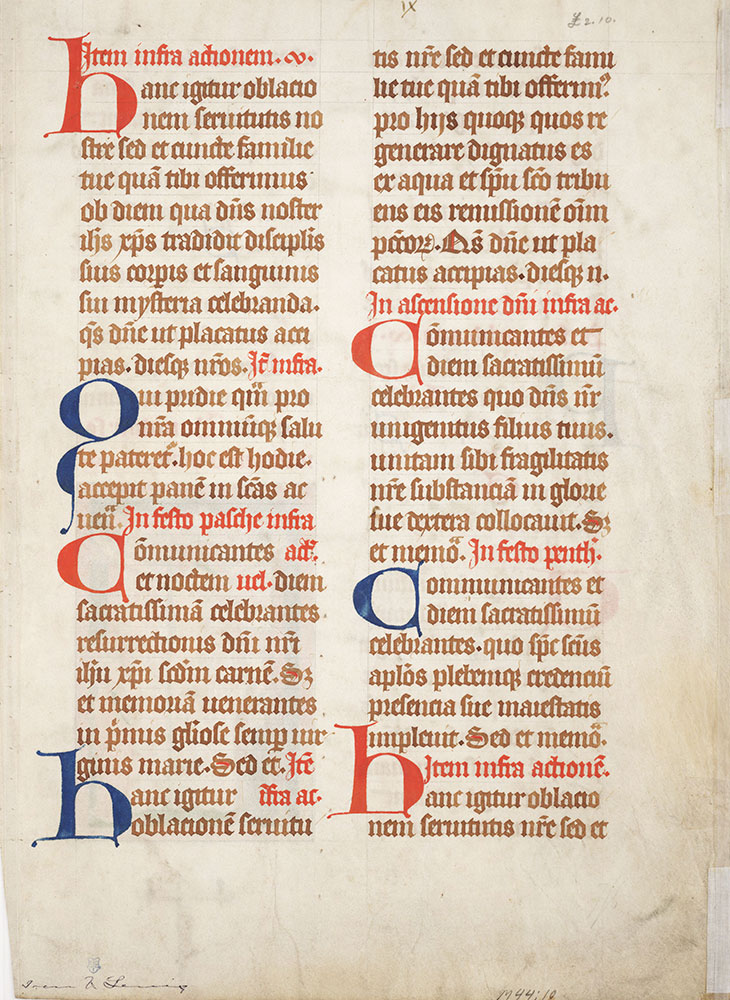 IX
£2.10.
Item infra actionem.
Hanc igitur oblacio
nem seruitutis no
stre sed et cuncte familie
tue quā tibi offerimus
ob diem qua dn̄s noster
ih̄s xp̄s tradidit discipl̄is
suis corpis et sanguinis
sui mysteria celebranda.
qs̄ dn̄e ut placatus acci
pias. diesqꝫ nr̄os. It̄ infra.
Qui pridie qm̄ pro
nr̄a omniūqꝫ salu
te pateret᷑. hoc est hodie.
accepit panē in sc̄as ac
uen̄. In festo pasche infra
Cōmunicantes act̄.
et noctem uel. diem
sacratissimā celebrantes
resurrectionis dn̄i nr̄i
ih̄u xp̄i scd̄m carnē. Sꝫ
et memoriā uenerantes
in p̄mis gl̄iose semꝑ uir
ginis marie. Sed et̄. Itē
Hanc igitur īfra ac.
oblacionē seruitu
tis nr̄e sed et cuncte fami
lie tue quā tibi offerim᷒.
pro hijs quoqꝫ quos re
generare dignatus es
ex aqua et sp̄u sc̄o tribu
ens eis remissionē om̄
pc̄c̄oꝝ. Qs̄ dn̄e ut pla
catus accipias. diesqꝫ n.
In ascensione dn̄i infra ac.
Cōmunicantes et
diem sacratissimū
celebrantes quo dn̄s nr̄
unigenitus filius tuus.
unitam sibi fragilitatis
nr̄e substanciā in glorie
sue dextera collocauit. Sꝫ
et memō. In festo penth̄.
Communicantes et
diem sacratissimū
celebrantes. quo sp̄c sc̄us
apl̄os plebemqꝫ credenciū
presencia sue maiestatis
impleuit. Sed et memō.
Item infra actionē.
Hanc igitur oblacio
nem seruitutis nr̄e sed et
M44:10